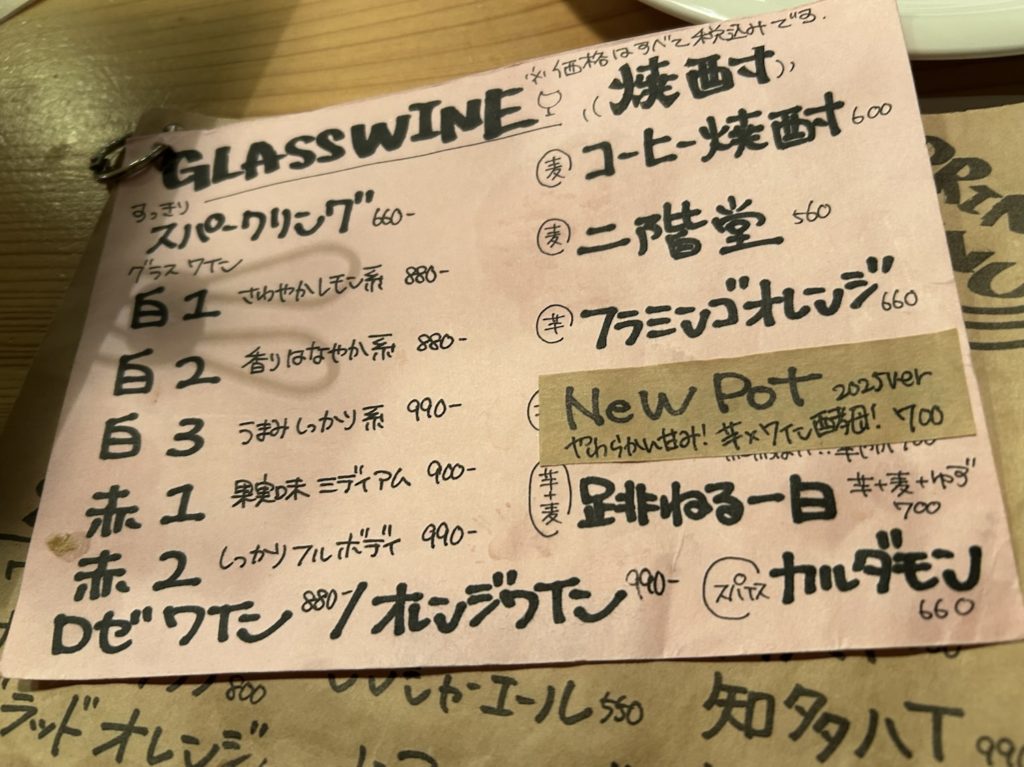 ※価格はすべて税込みです.
GLASSWINE
すっきり
スパークリング 660-
グラスワイン
白1 さわやかレモン系 880-
白2 香りはなやか系 880-
白3 うまみしっかり系 990-
赤1 果実味ミディアム 900-
赤2 しっかりフルボディ 990-
ロゼワイン 880- / オレンジワイン 990-
焼酎
麦 コーヒー焼酎 600
麦 二階堂 560
芋 フラミンゴオレンジ 660
New Pot 2025ver
やわらかい甘み! 芋×ワイン酵母! 700
芋+麦 是非ねる一日 芋+麦+ゆず
700
スパイス カルダモン
660
800
エール 550
知多ハイ 990
ラッドオレンジ